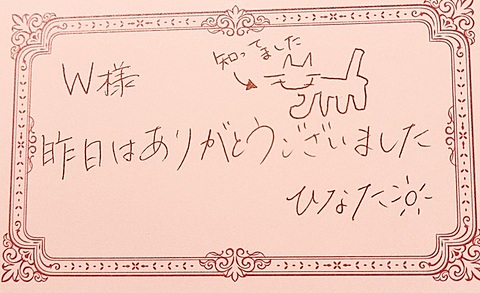 知ってました
W様
昨日はありがとうございました
ひなた